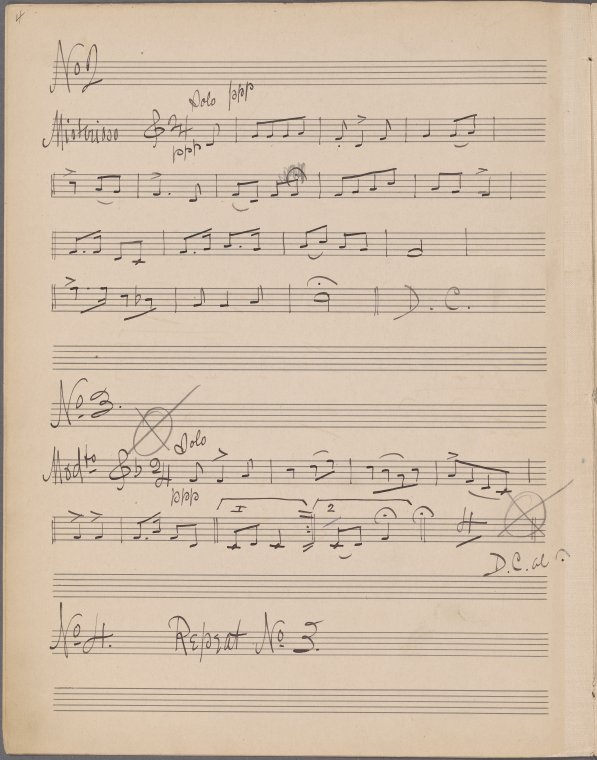 4
No 2
Solo ppp
Misterioso 2/4 ppp
D. C.
No. 3.
Solo
Modto 2/4
ppp
1 2
4
D.C. al
No. 4. Repeat No. 3.